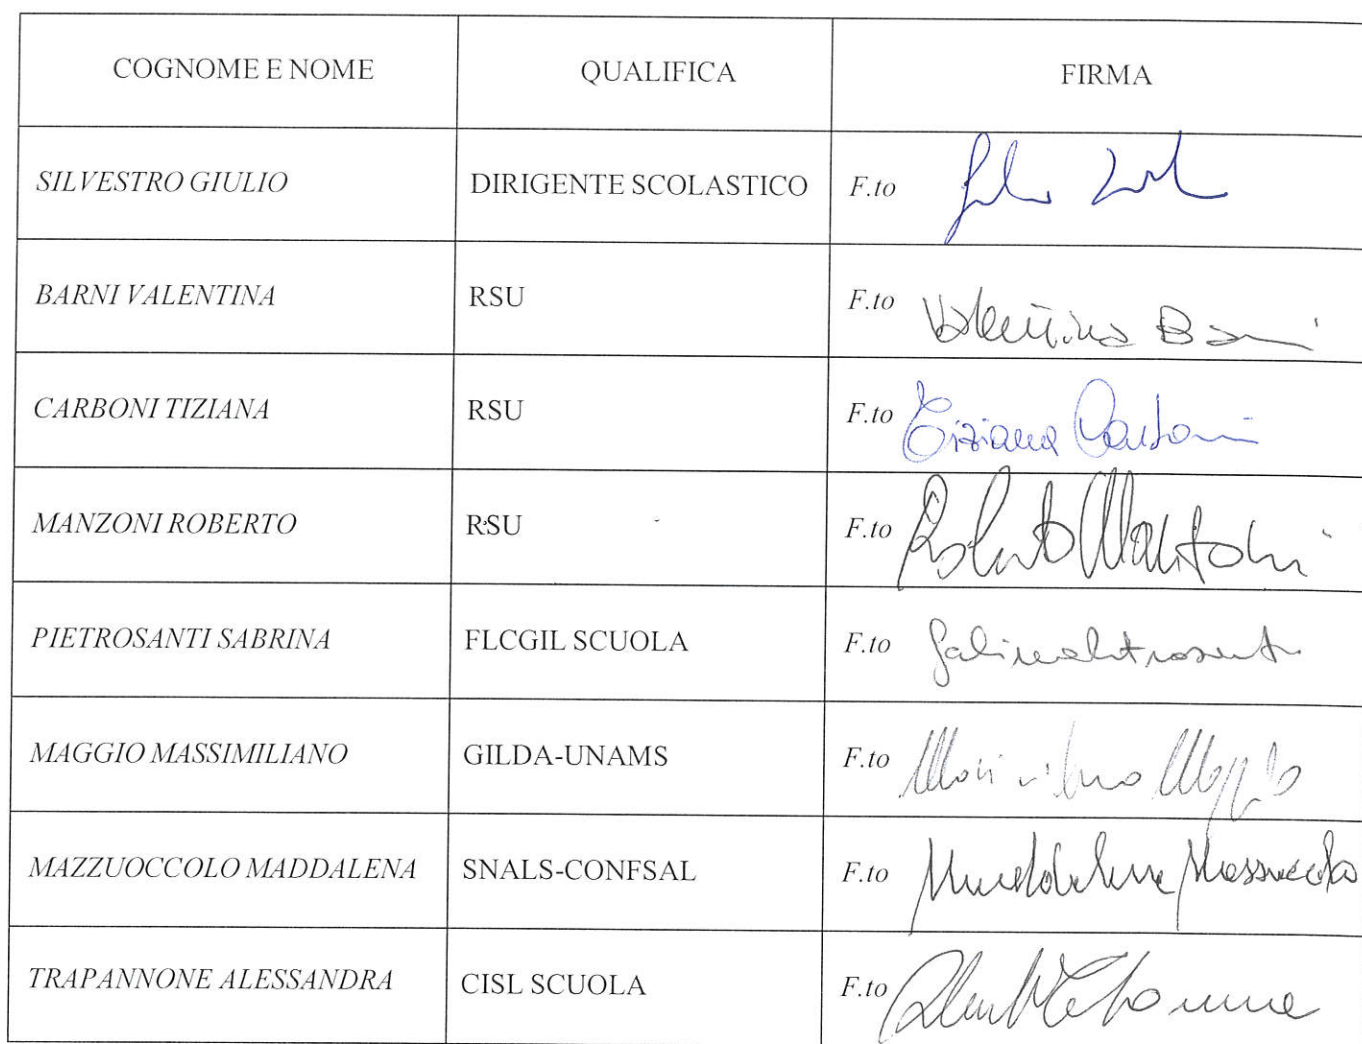 COGNOME E NOME QUALIFICA FIRMA
SILVESTRO GIULIO DIRIGENTE SCOLASTICO F.to
BARNI VALENTINA RSU F.to Valentina Barni
CARBONI TIZIANA RSU F.to Tiziana Carboni
MANZONI ROBERTO RSU F.to Roberto Manzoni
PIETROSANTI SABRINA FLCGIL SCUOLA F.to
MAGGIO MASSIMILIANO GILDA-UNAMS F.to
MAZZUOCCOLO MADDALENA SNALS-CONFSAL F.to Maddalena
TRAPANNONE ALESSANDRA CISL SCUOLA F.to